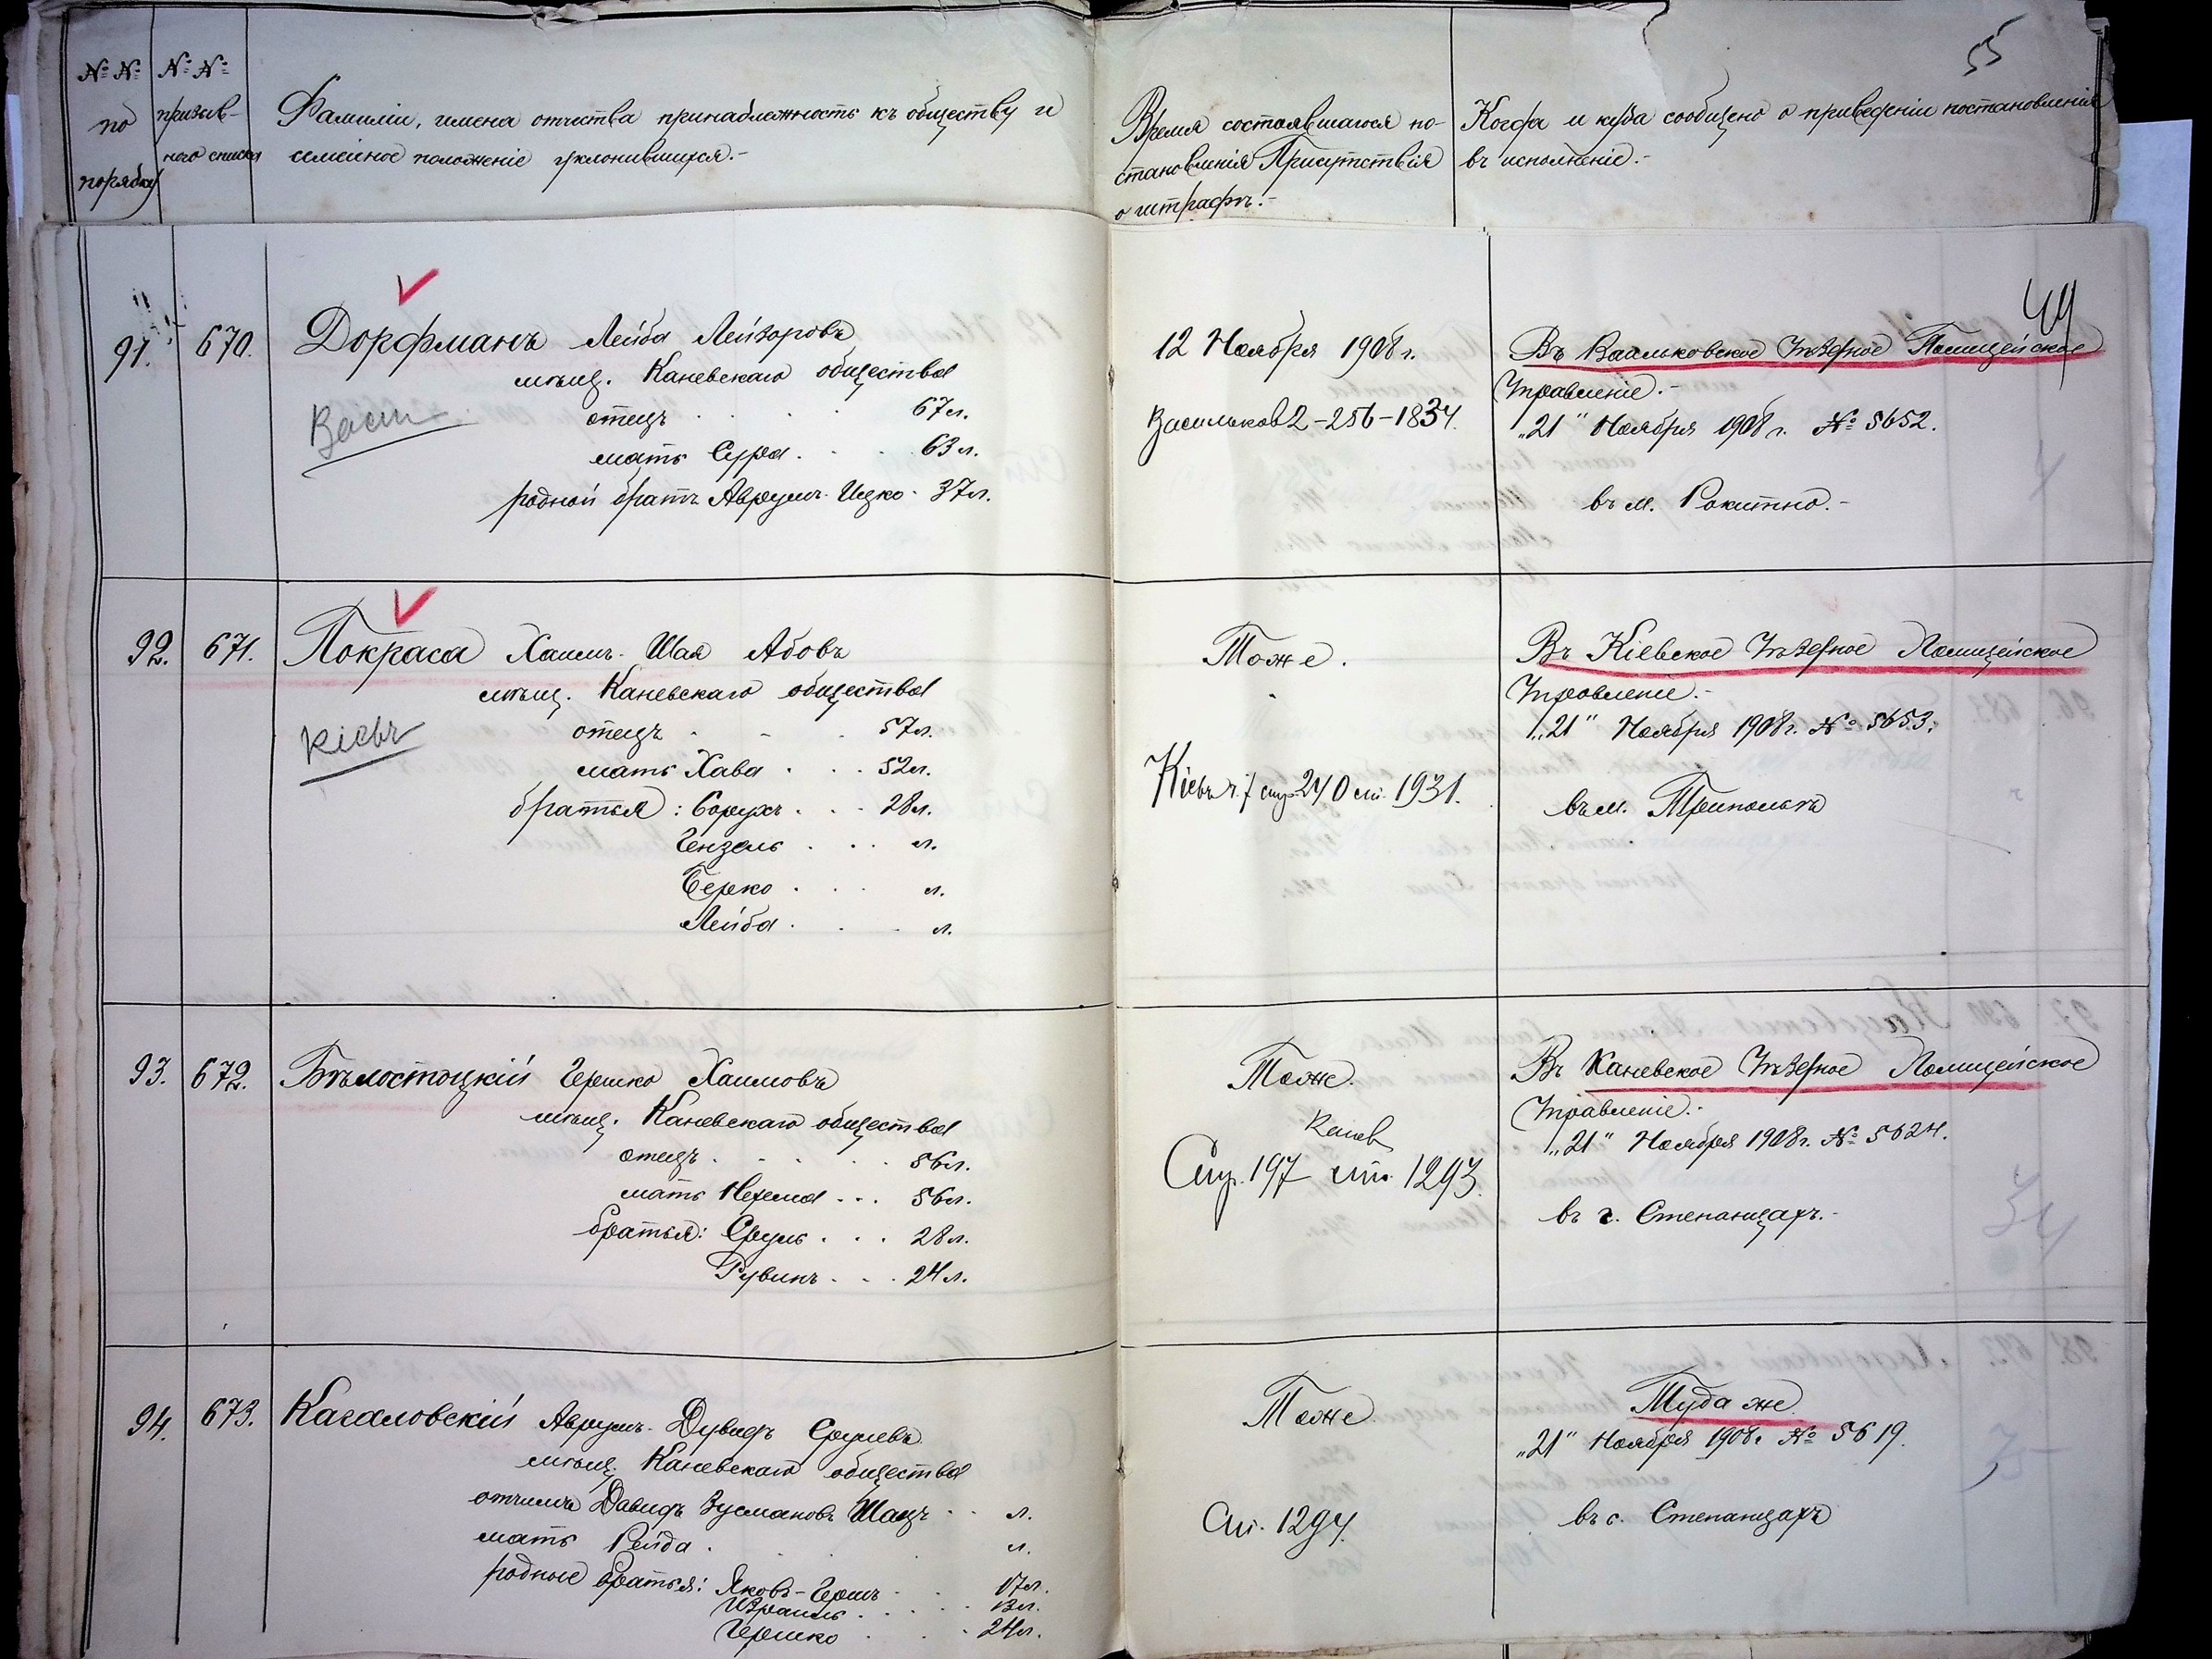 № № по порядку
№ № призыв-
наго списка
Фамиліи, имена отчества принадлежность къ обществу и
семейное положеніе уклонившихся.-
Время состоявшагося по-
становленія Присутствія
о штрафѣ.-
Когда и куда сообщено о приведеніи постановленія
въ исполненіе.-
55
49
91. 670. Дорфманъ Лейба Лейзоровъ
мѣщ. Каневскаго общества
Васил
отецъ . . . . 67 л.
мать Сура . . . 63 л.
родной братъ Аврумъ-Ицко - 37 л.
12 Ноября 1908 г.
Васильков 2-256-1834.
Въ Васильковское Уѣздное Полицейское
Управленіе.-
"21" Ноября 1908 г. № 5652.
въ м. Рокитно.-
92. 671. Покраса Хаимъ-Шая Абовъ
мѣщ. Каневскаго общества
Кіевъ
отецъ . . . 57 л.
мать Хава . . . 52 л.
братья: Борухъ . . . 28 л.
Гензель . . . л.
Берко . . . л.
Лейба . . . л.
Тоже.
Кіевъ ч. 1 стр. 240 ст. 1931.
Въ Кіевское Уѣздное Полицейское
Управленіе.-
"21" Ноября 1908 г. № 5653.
въ м. Трипольѣ
93. 672. Бѣлостоцкій Гершко Хаимовъ
мѣщ. Каневскаго общества
отецъ . . . . 56 л.
мать Нехема . . . 56 л.
братья: Сруль . . . 28 л.
Рувинъ . . . 24 л.
Тоже.
Канев
Стр. 197 ст. 1293.
Въ Каневское Уѣздное Полицейское
Управленіе.-
"21" Ноября 1908 г. № 5624.
въ г. Степанцахъ.-
34
94. 673. Кагаловскій Аврумъ-Дувидъ Срулевъ
мѣщ. Каневскаго общества
отчимъ Давидъ Зусмановъ Шацъ . . л.
мать Рейда . . л.
родные братья: Яковъ-Гершъ . . 17 л.
Израиль . . . . 13 л.
Гершко . . . 24 л.
Тоже
Ст. 1294.
Туда же
"21" Ноября 1908 г. № 5619.
въ с. Степанцахъ